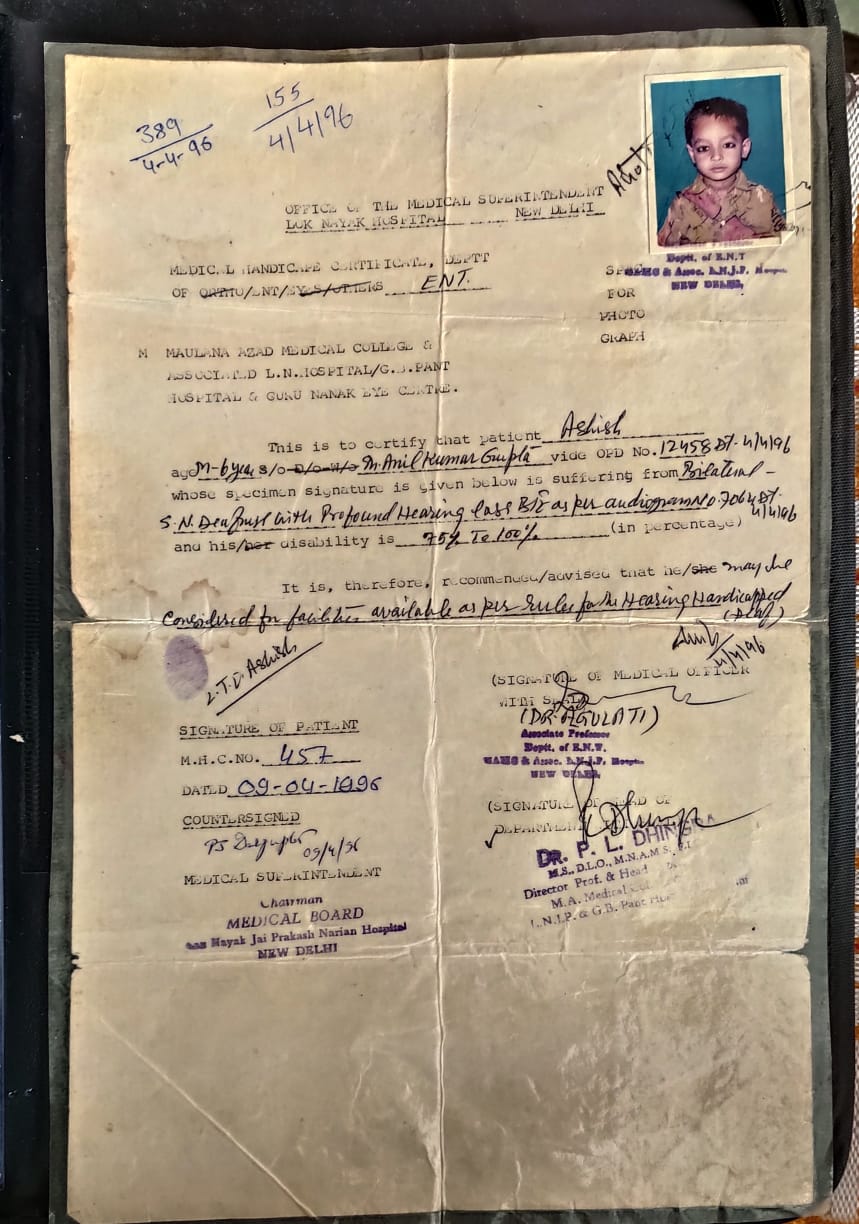 389
4-4-96
155
4/4/96
OFFICE OF THE MEDICAL SUPERINTENDENT
LOK NAYAK HOSPITAL NEW DELHI
MEDICAL HANDICAPE CERTIFICATE, DEPTT
OF ORTHO/ENT/EYES/OTHERS ENT.
Deptt. of E.N.T
MAMC & Assoc. L.N.J.P. Hospi
NEW DELHI,
FOR
PHOTO
GRAPH
M MAULANA AZAD MEDICAL COLLEGE &
ASSOCIATED L.N.HOSPITAL/G.B.PANT
HOSPITAL & GURU NANAK EYE CENTRE.
This is to certify that patient Ashish
age M-6 year S/o D/o W/o Sh. Anil Kumar Gupta vide OPD No. 12458 Dt. 4/4/96
whose specimen signature is given below is suffering from Bilateral -
S.N. Deafness with Profound Hearing loss as per audiogram No. 7064 Dt. 4/4/96
and his/her disability is 75% To 100% (in percentage)
It is, therefore, recommended/advised that he/she may be
Considered for facilities available as per rules for the Hearing Handicapped
(Deaf)
4/4/96
L.T.I. Ashish
(SIGNATURE OF MEDICAL OFFICER
WITH SEAL)
(DR. A GULATI)
Associate Professor
Deptt. of E.N.T.
MAMC & Assoc. L.N.J.P. Hospi
NEW DELHI,
SIGNATURE OF PATIENT
M.H.C.NO. 457
DATED 09-04-1996
COUNTERSIGNED
09/4/96
MEDICAL SUPERINTENDENT
Chairman
MEDICAL BOARD
Nayak Jai Prakash Narian Hospital
NEW DELHI
(SIGNATURE OF HEAD OF
DEPARTMENT
DR. P. L. DHINGRA
M.S., D.L.O., M.N.A.M.S.
Director Prof. & Head
M.A. Medical
L.N.J.P. & G.B. Pant